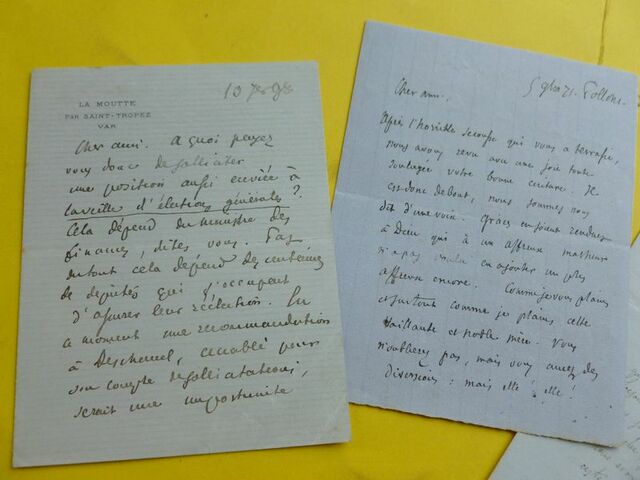 LA MOUTTE
PAR SAINT-TROPEZ
VAR
Cher ami. A quoi pensez
vous donc de solliciter
une position aussi enviée à
la veille d'élections générales ?
Cela dépend du ministre des
finances, dites vous. Pas
du tout cela dépend des centaines
de députés qui s'occupent
d'assurer leur réélection. En
ce moment une recommandation
à Deschanel, accablé pour
son compte de sollicitations,
serait une importunité
5 9bre 71. Tollone.
Cher ami.
Après l'horrible secousse qui vous a terrassé,
nous avons revu avec une joie toute
soulagée votre bonne écriture. Il
est donc debout, nous sommes nous
dit d'une voix. Grâces en soient rendues
à Dieu qui à un affreux malheur
n'a pas voulu en ajouter un plus
affreux encore. Comme je vous plains
et surtout comme je plains cette
vaillante et noble mère. Vous
n'oublierez pas, mais vous aurez des
diversions : mais elle ! elle !